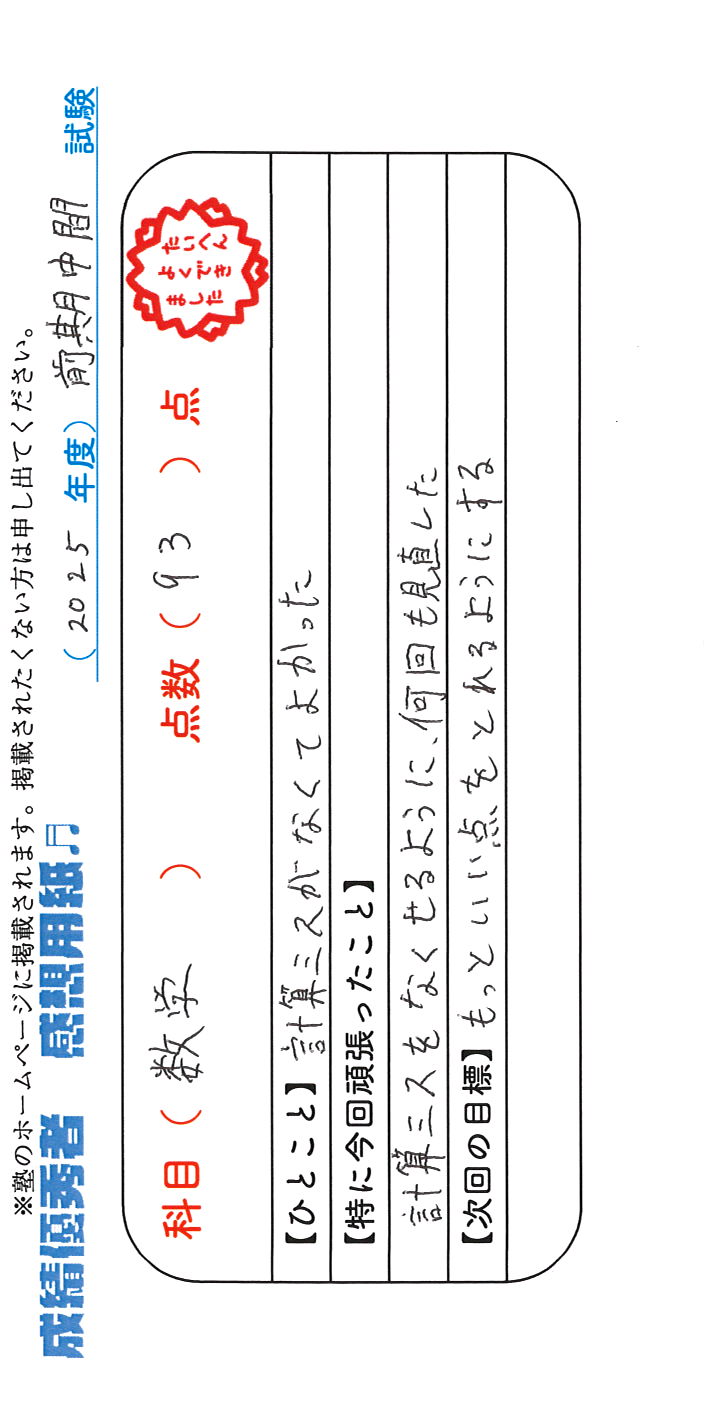 ※塾のホームページに掲載されます。掲載されたくない方は申し出てください。
成績優秀者 感想用紙♫
(2025 年度) 前期中間 試験
科目(数学) 点数(93)点
たいへん
よくでき
ました
【ひとこと】計算ミスがなくてよかった
【特に今回頑張ったこと】
計算ミスをなくせるように、何回も見直した
【次回の目標】もっといい点をとれるようにする